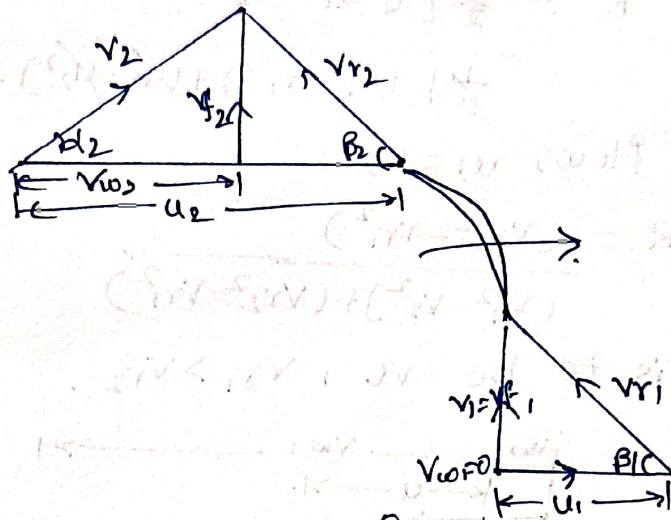 V2
Vr2
Vf2
α2
β2
Vw2
u2
V1=Vf1
Vr1
Vw1=0
β1
u1